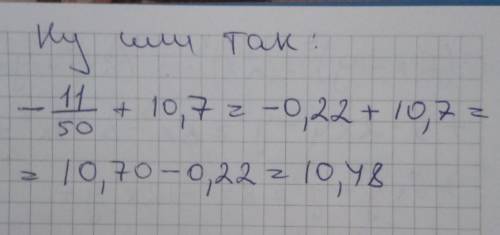 Ну или так:
- 11/50 + 10,7 = -0,22 + 10,7 =
= 10,70 - 0,22 = 10,48